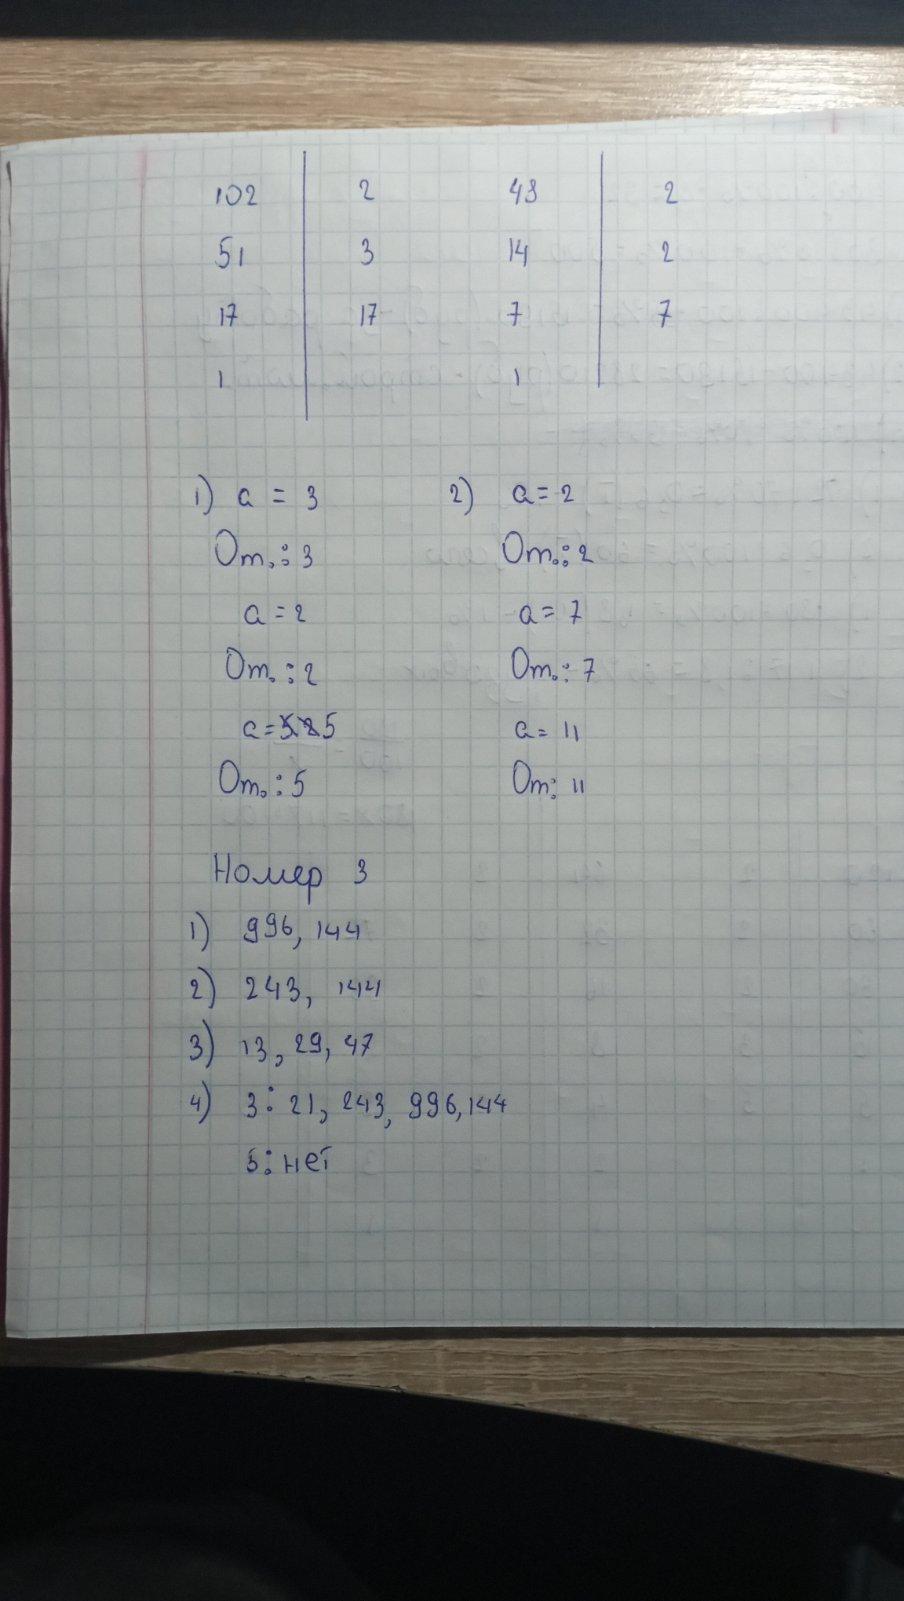 102 | 2 43 | 2
51 | 3 14 | 2
17 | 17 7 | 7
1 | 1 |
1) a = 3 2) a = 2
От.: 3 От.: 2
a = 2 a = 7
От.: 2 От.: 7
a = 5 a = 11
От.: 5 От: 11
Номер 3
1) 996, 144
2) 243, 144
3) 13, 29, 47
4) 3: 21, 243, 996, 144
5: нет